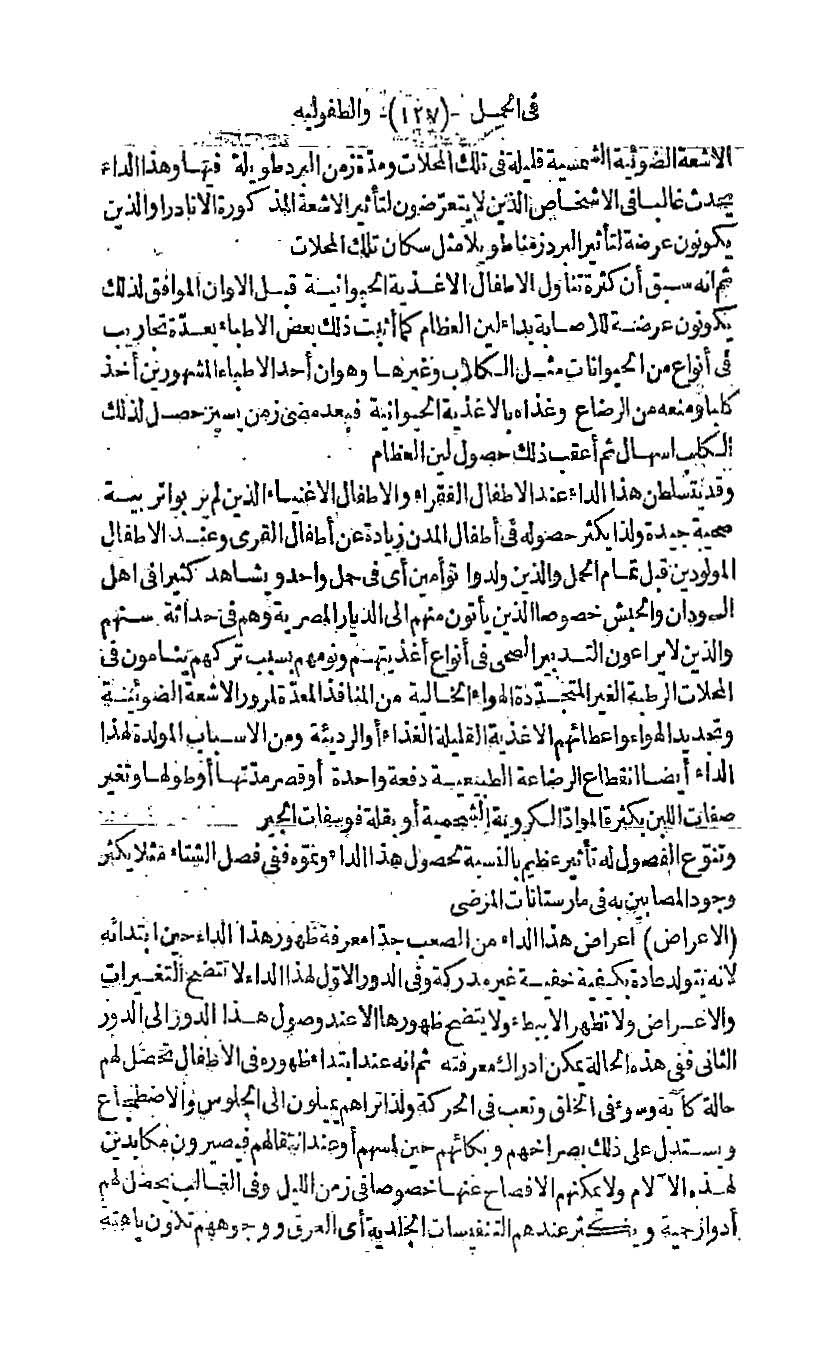 فى الحمل -(١٢٧)- والطفوليه
الاشعة الضوئية الشمسية قليلة فى تلك المحلات ومدة زمن البرد طويلة فيها وهذا الداء
يحدث غالبا فى الاشخاص الذين لا يتعرّضون لتأثير الاشعة المذكورة الا نادرا والذين
يكونون عرضة لتأثير البرد زمنا طويلا مثل سكان تلك المحلات
ثم انه سبق أن كثرة تناول الاطفال الاغذية الحيوانية قبل الاوان الموافق لذلك
يكونون عرضة للاصابة بداء لين العظام كما أثبت ذلك بعض الاطباء بعدّة تجاريب
فى أنواع من الحيوانات مثل الكلاب وغيرها وهو ان أحد الاطباء المشهورين أخذ
كلبا ومنعه من الرضاع وغذاه بالاغذية الحيوانية فبعد مضى زمن يسير حصل لذلك
الكلب اسهال ثم أعقب ذلك حصول لين العظام
وقد يتسلطن هذا الداء عند الاطفال الفقراء والاطفال الاغنياء الذين لم يربوا تربية
صحية جيدة ولذا يكثر حصوله فى أطفال المدن زيادة عن أطفال القرى وعند الاطفال
المولودين قبل تمام الحمل والذين ولدوا توأمين أى فى حمل واحد ويشاهد كثيرا فى اهل
السودان والحبش خصوصا الذين يأتون منهم الى الديار المصرية وهم فى حداثة سنهم
والذين لا يراعون التدبير الصحى فى أنواع أغذيتهم ونومهم بسبب تركهم ينامون فى
المحلات الرطبة الغير المتجدّدة الهواء الخالية من المنافذ المعدّة لمرور الاشعة الضوئية
وتجديد الهواء واعطائهم الاغذية القليلة الغذاء أو الرديئة ومن الاسباب المولدة لهذا
الداء أيضا انقطاع الرضاعة الطبيعية دفعة واحدة أو قصر مدّتها أو طولها وتغير
صفات اللبن بكثرة الموادّ الكروية الشحمية أو بقلة فوسفات الجير
وتنوّع الفصول له تأثير عظيم بالنسبة لحصول هذا الداء ونموّه ففى فصل الشتاء مثلا يكثر
وجود المصابين به فى مارستانات المرضى
(الاعراض) أعراض هذا الداء من الصعب جدّا معرفة ظهور هذا الداء حين ابتدائه
لانه يتولد عادة بكيفية خفية غير مدركة وفى الدور الاوّل لهذا الداء لا تتضح التغيرات
والاعراض ولا تظهر الا ببطء ولا يتضح ظهورها الا عند وصول هذا الدور الى الدور
الثانى ففى هذه الحالة يمكن ادراك معرفته ثم انه عند ابتداء ظهوره فى الاطفال تحصل لهم
حالة كآبة وسوء فى الخلق وتعب فى الحركة ولذا تراهم يميلون الى الجلوس والاضطجاع
ويستدل على ذلك بصراخهم وبكائهم حين لمسهم أو عند انتقالهم فيصيرون مكابدين
لهذه الآلام ولا يمكنهم الافصاح عنها خصوصا فى زمن الليل وفى الغالب يحصل لهم
أدوار حمية ويكثر عندهم التنفيسات الجلدية أى العرق ووجوههم تكون باهتة